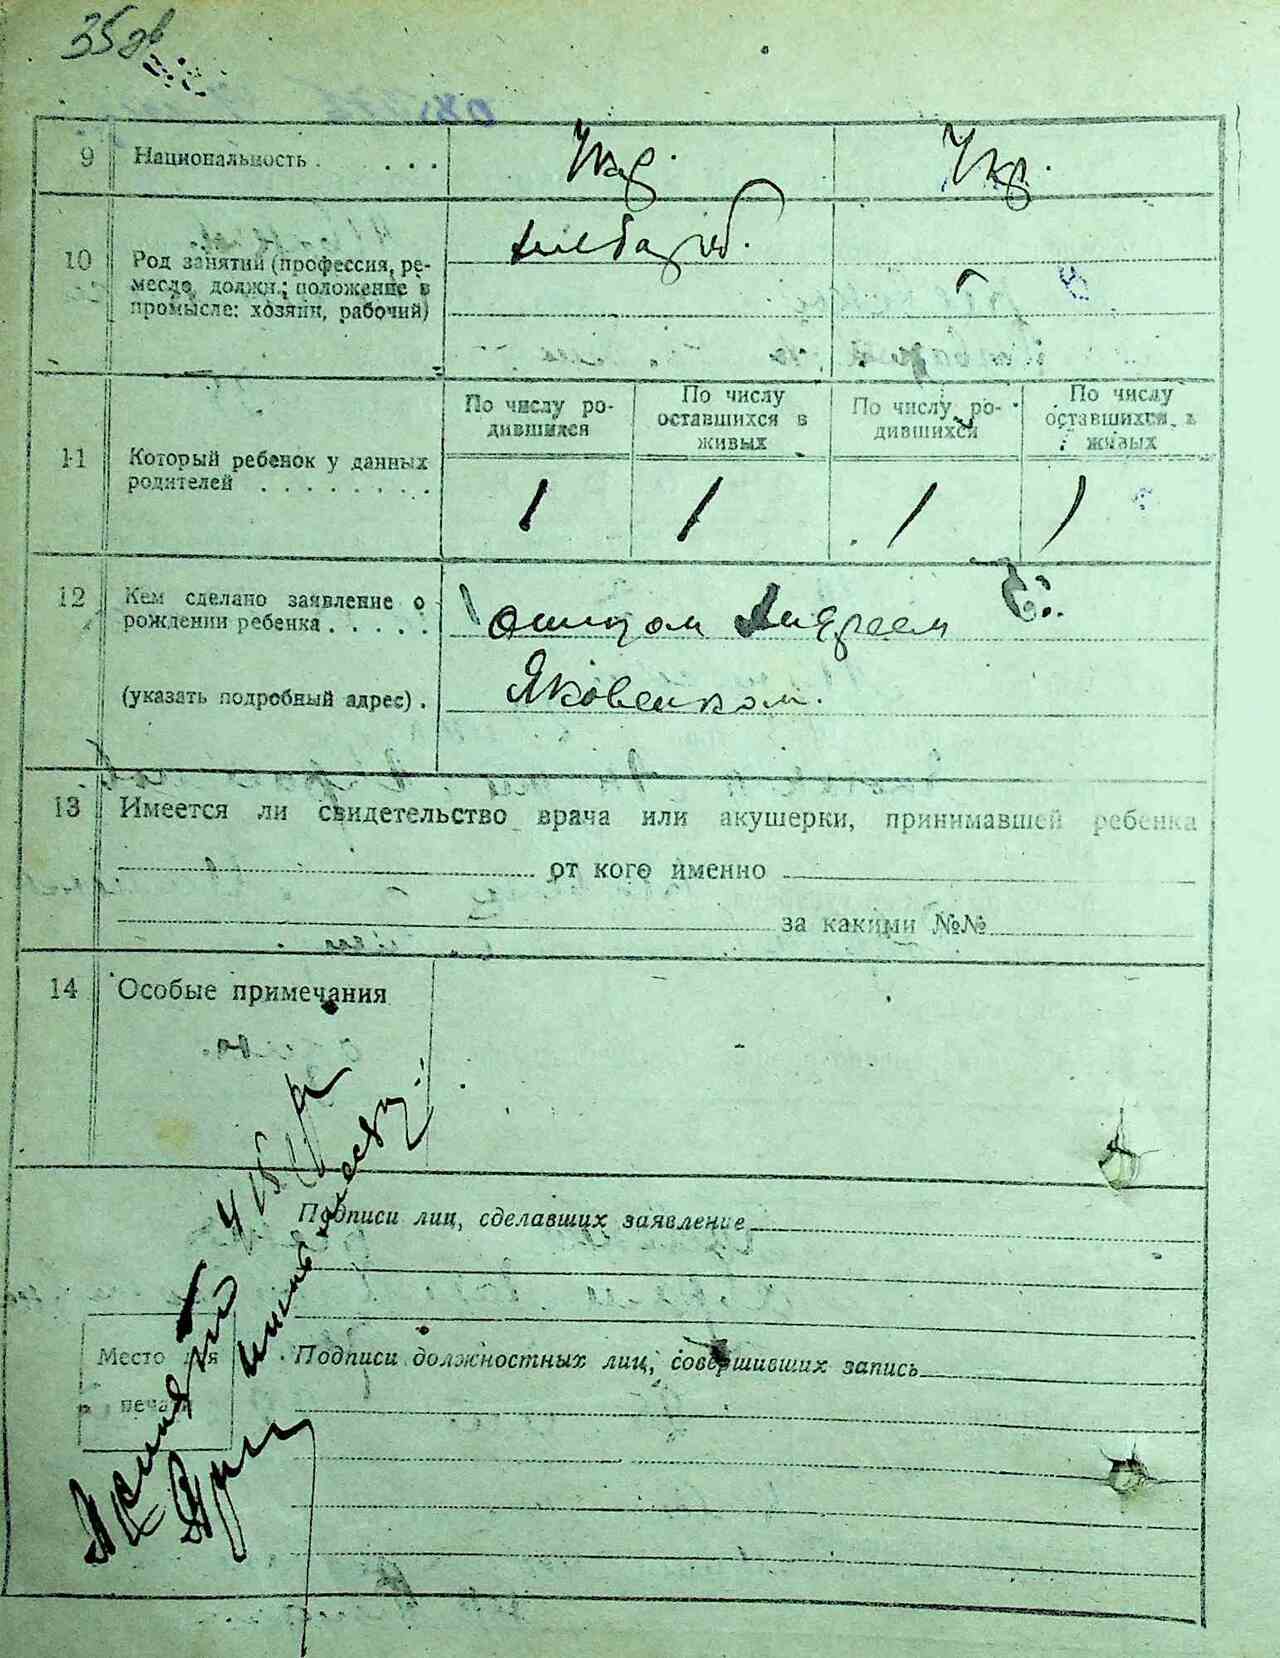 35 об
9 Национальность . . . . Укр. Укр.
10 Род занятий (профессия, ре-
месло, должн.; положение в
промысле: хозяин, рабочий)
11 Который ребенок у данных
родителей . . . . . . . .
По числу ро-
дившихся
По числу
оставшихся в
живых
По числу ро-
дившихся
По числу
оставшихся в
живых
1 1 1 1
12 Кем сделано заявление о
рождении ребенка . . . . .
(указать подробный адрес) .
Андреем
Яковенком.
13 Имеется ли свидетельство врача или акушерки, принимавшей ребенка
от кого именно
за какими №№
14 Особые примечания
Подписи лиц, сделавших заявление
Место для
печати
Подписи должностных лиц, совершивших запись